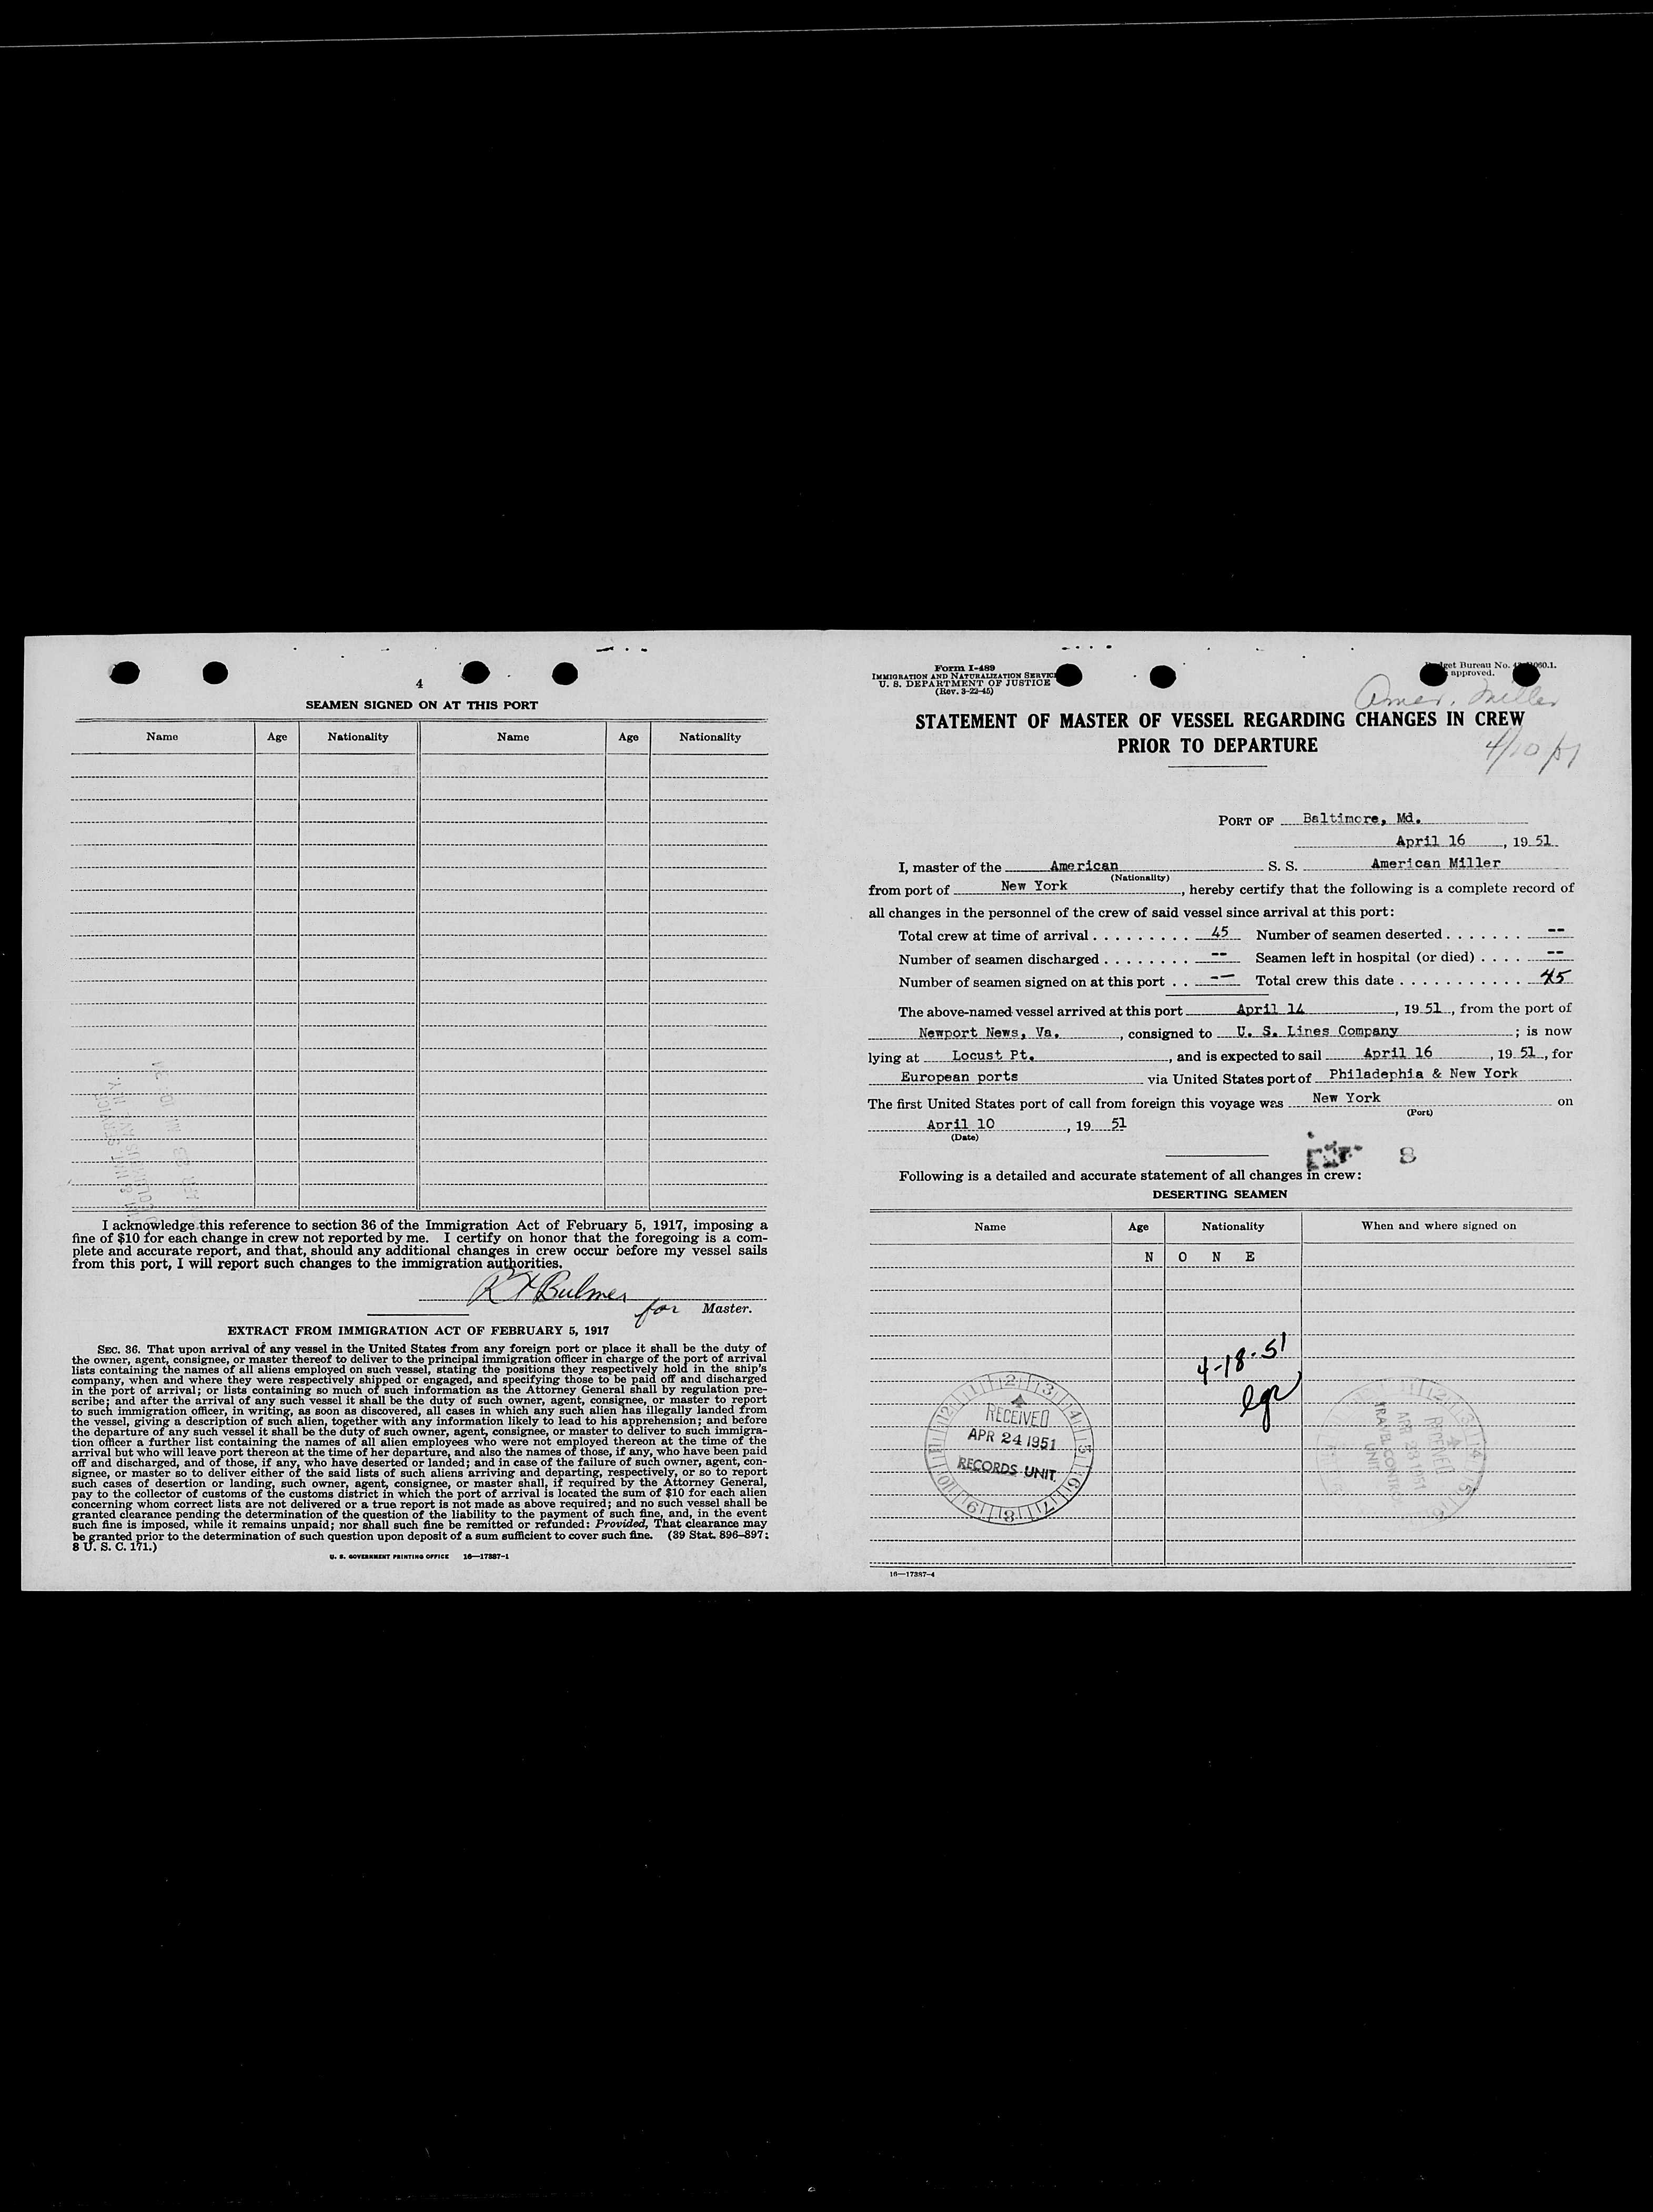 4
SEAMEN SIGNED ON AT THIS PORT
Name Age Nationality Name Age Nationality
I acknowledge this reference to section 36 of the Immigration Act of February 5, 1917, imposing a
fine of $10 for each change in crew not reported by me. I certify on honor that the foregoing is a com-
plete and accurate report, and that, should any additional changes in crew occur before my vessel sails
from this port, I will report such changes to the immigration authorities.
Bulmer
for Master.
EXTRACT FROM IMMIGRATION ACT OF FEBRUARY 5, 1917
SEC. 36. That upon arrival of any vessel in the United States from any foreign port or place it shall be the duty of
the owner, agent, consignee, or master thereof to deliver to the principal immigration officer in charge of the port of arrival
lists containing the names of all aliens employed on such vessel, stating the positions they respectively hold in the ship's
company, when and where they were respectively shipped or engaged, and specifying those to be paid off and discharged
in the port of arrival; or lists containing so much of such information as the Attorney General shall by regulation pre-
scribe; and after the arrival of any such vessel it shall be the duty of such owner, agent, consignee, or master to report
to such immigration officer, in writing, as soon as discovered, all cases in which any such alien has illegally landed from
the vessel, giving a description of such alien, together with any information likely to lead to his apprehension; and before
the departure of any such vessel it shall be the duty of such owner, agent, consignee, or master to deliver to such immigra-
tion officer a further list containing the names of all alien employees who were not employed thereon at the time of the
arrival but who will leave port thereon at the time of her departure, and also the names of those, if any, who have been paid
off and discharged, and of those, if any, who have deserted or landed; and in case of the failure of such owner, agent, con-
signee, or master so to deliver either of the said lists of such aliens arriving and departing, respectively, or so to report
such cases of desertion or landing, such owner, agent, consignee, or master shall, if required by the Attorney General,
pay to the collector of customs of the customs district in which the port of arrival is located the sum of $10 for each alien
concerning whom correct lists are not delivered or a true report is not made as above required; and no such vessel shall be
granted clearance pending the determination of the question of the liability to the payment of such fine, and, in the event
such fine is imposed, while it remains unpaid; nor shall such fine be remitted or refunded: Provided, That clearance may
be granted prior to the determination of such question upon deposit of a sum sufficient to cover such fine. (39 Stat. 896–897;
8 U. S. C. 171.)
U. S. GOVERNMENT PRINTING OFFICE 16—17387-1
Form I-489
IMMIGRATION AND NATURALIZATION SERVICE
U. S. DEPARTMENT OF JUSTICE
(Rev. 3-22-45)
Bureau No.
approved.
Amer. Miller
STATEMENT OF MASTER OF VESSEL REGARDING CHANGES IN CREW
PRIOR TO DEPARTURE
4/10/51
PORT OF Baltimore, Md.
April 16, 19 51
I, master of the American S. S. American Miller
(Nationality)
from port of New York, hereby certify that the following is a complete record of
all changes in the personnel of the crew of said vessel since arrival at this port:
Total crew at time of arrival . . . . . . . . . 45 Number of seamen deserted . . . . . . . --
Number of seamen discharged . . . . . . . . -- Seamen left in hospital (or died) . . . . --
Number of seamen signed on at this port . . -- Total crew this date . . . . . . . . . . . . 45
The above-named vessel arrived at this port April 14, 19 51, from the port of
Newport News, Va., consigned to U. S. Lines Company; is now
lying at Locust Pt., and is expected to sail April 16, 19 51, for
European ports via United States port of Philadephia & New York.
The first United States port of call from foreign this voyage was New York on
(Port)
April 10, 19 51
(Date)
8
Following is a detailed and accurate statement of all changes in crew:
DESERTING SEAMEN
Name Age Nationality When and where signed on
N O N E
4-18-51
RECEIVED
APR 24 1951
RECORDS UNIT
RECEIVED
APR 23 1951
TRAVEL CONTROL
UNIT
16—17387-4